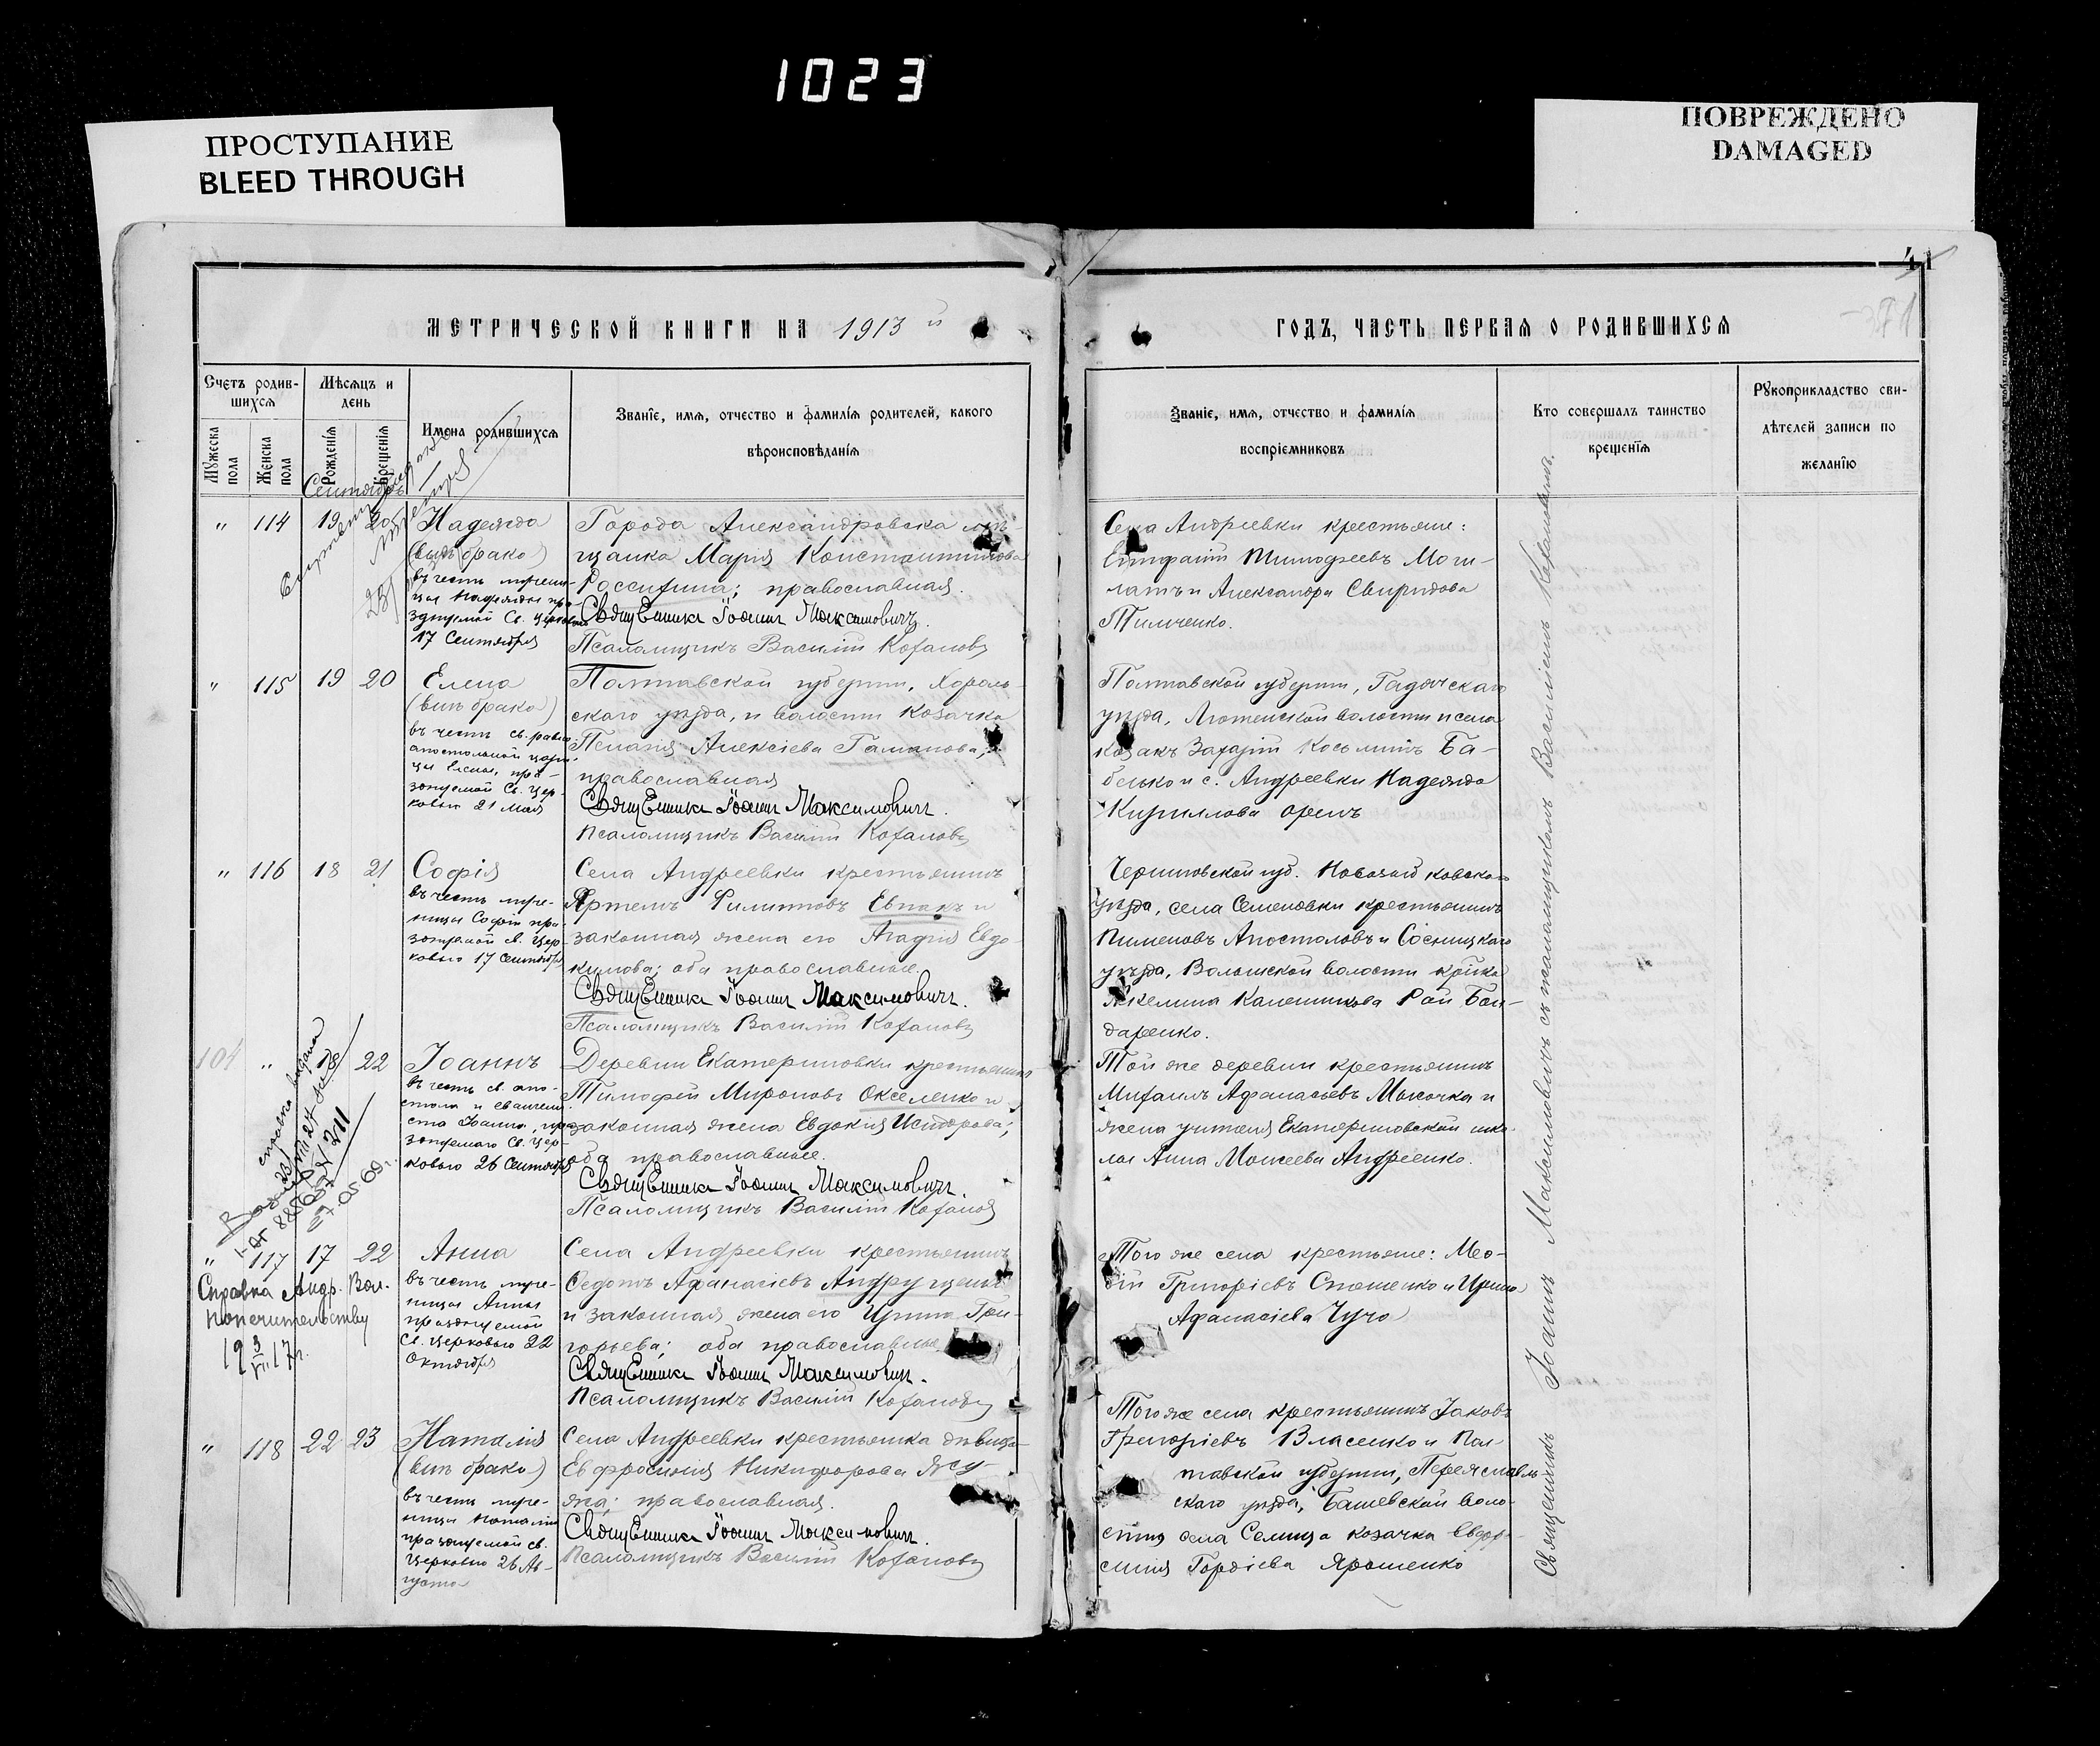 1023
ПРОСТУПАНИЕ
BLEED THROUGH
ПОВРЕЖДЕНО
DAMAGED
41
МЕТРИЧЕСКОЙ КНИГИ НА 1913 й
ГОДЪ, ЧАСТЬ ПЕРВАЯ О РОДИВШИХСЯ
Счетъ родив-
шихся
Мужеска пола
Женска пола
Мѣсяцъ и
день
Рожденія
Крещенія
Имена родившихся
Званіе, имя, отчество и фамилія родителей, какого
вѣроисповѣданія
Званіе, имя, отчество и фамилія
воспріемниковъ
Кто совершалъ таинство
крещенія
Рукоприкладство сви-
дѣтелей записи по
желанію
Сентябрь
" 114 19 20 Надежда
(внѣ брака)
въ честь мучени-
цы Надежды пра-
зднуемой Св. Церковью
17 Сентября
Города Александровска мѣ-
щанка Марія Константинова
Россихина; православная.
Священникъ Іоаннъ Максимовичъ.
Псаломщикъ Василій Кохановъ
Села Андреевки крестьяне:
Епифаній Тимофеевъ Моги-
латъ и Александра Свиридова
Тимченко.
" 115 19 20 Елена
(внѣ брака)
въ честь св. равно-
апостольной цари-
цы Елены, пра-
зднуемой Св. Цер-
ковью 21 Мая
Полтавской губерніи, Хороль-
скаго уѣзда, и волости козачка
Пелагія Алексіева Гаманова;
православная
Священникъ Іоаннъ Максимовичъ.
Псаломщикъ Василій Кохановъ
Полтавской губерніи, Гадячскаго
уѣзда, Лютенской волости и села
козакъ Захарій Косьминъ Ба-
белько и с. Андреевки Надежда
Кириллова Орелъ
" 116 18 21 Софія
въ честь муче-
ницы Софіи пра-
зднуемой св. Цер-
ковью 17 Сентября
Села Андреевки крестьянинъ
Артемъ Филипповъ Евпакъ и
законная жена его Агафія Евдо-
кимова; оба православные.
Священникъ Іоаннъ Максимовичъ.
Псаломщикъ Василій Кохановъ
Черниговской губ. Новозыбковскаго
уѣзда, села Семеновки крестьянинъ
Пименовъ Апостоловъ и Сосницкаго
уѣзда, Волынской волости кр-нка
Бон-
даренко.
104 " 18 22 Іоаннъ
въ честь св. апо-
стола и евангели-
ста Іоанна, пра-
зднуемаго Св. Цер-
ковью 26 Сентября
Деревни Екатериновки крестьянинъ
Тимофей Мироновъ Окселенко и
законная жена Евдокія Исидорова;
оба православные.
Священникъ Іоаннъ Максимовичъ.
Псаломщикъ Василій Кохановъ
Той же деревни крестьянинъ
Михаилъ Афанасьевъ Мысочка и
жена учителя Екатериновской шко-
лы Анна Моисеева Андреенко.
справка выдана
27.05.69г.
" 117 17 22 Анна
въ честь муче-
ницы Анны
празднуемой
Св. Церковью 22
Октября
Справка Андр. Вол.
попечительству
19 3/VII 17г.
Села Андреевки крестьянинъ
Федотъ Афанасіевъ Андрущенко
и законная жена его Ирина Гри-
горьева; оба православные
Священникъ Іоаннъ Максимовичъ.
Псаломщикъ Василій Кохановъ
Того же села крестьяне: Мео-
дій Григоріевъ Стошенко и Ирина
Афанасіева Чучо
" 118 22 23 Наталія
(внѣ брака)
въ честь муче-
ницы Наталіи
празднуемой св.
Церковью 26 Ав-
густа
Села Андреевки крестьянка дѣвица
Евфросинія Никифорова Ясу-
жа; православная.
Священникъ Іоаннъ Максимовичъ.
Псаломщикъ Василій Кохановъ
Того же села крестьянинъ Іаковъ
Григоріевъ Власенко и Пол-
тавской губерніи, Переяславль-
скаго уѣзда, волос-
ти села Селища козачка Евфро-
синія Гордіева Ярошенко
Священникъ Іоаннъ Максимовичъ съ псаломщикомъ Василіемъ Кохановымъ.